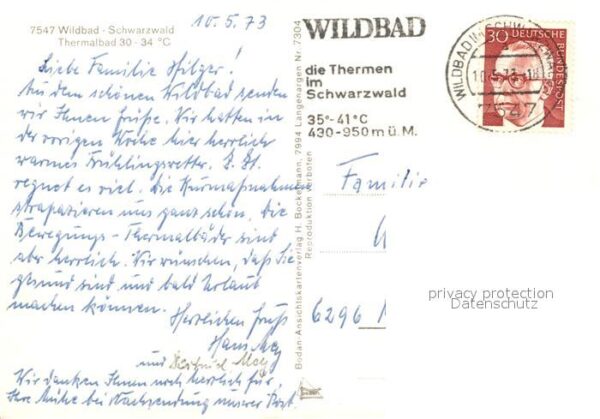 10.5.73
7547 Wildbad - Schwarzwald
Thermalbad 30 - 34 °C
Liebe Familie Hilger!
An dem schönen Wildbad senden
wir Ihnen Grüße. Wir hatten in
der vorigen Woche hier herrlich
warmes Frühlingswetter. Z. Zt.
regnet es viel. Die Kurmaßnahmen
strapazieren uns ganz schön. Die
Bewegungs-Thermalbäder sind
aber herrlich. Wir wünschen, daß Sie
gesund sind und bald Urlaub
machen können.
Herzlichen Gruß
Hans
und
Wir danken Ihnen noch herzlich für
Ihre Mühe bei Nachsendung unserer Post.
Bodan-Ansichtskartenverlag H. Bockelmann, 7994 Langenargen Nr. 7304
Reproduktion verboten
WILDBAD
die Thermen
im
Schwarzwald
35°-41°C
430-950m ü.M.
WILDBAD IM SCHW
10.5.73-18
7547
30 DEUTSCHE
BUNDESPOST
Familie
6296
privacy protection
Datenschutz